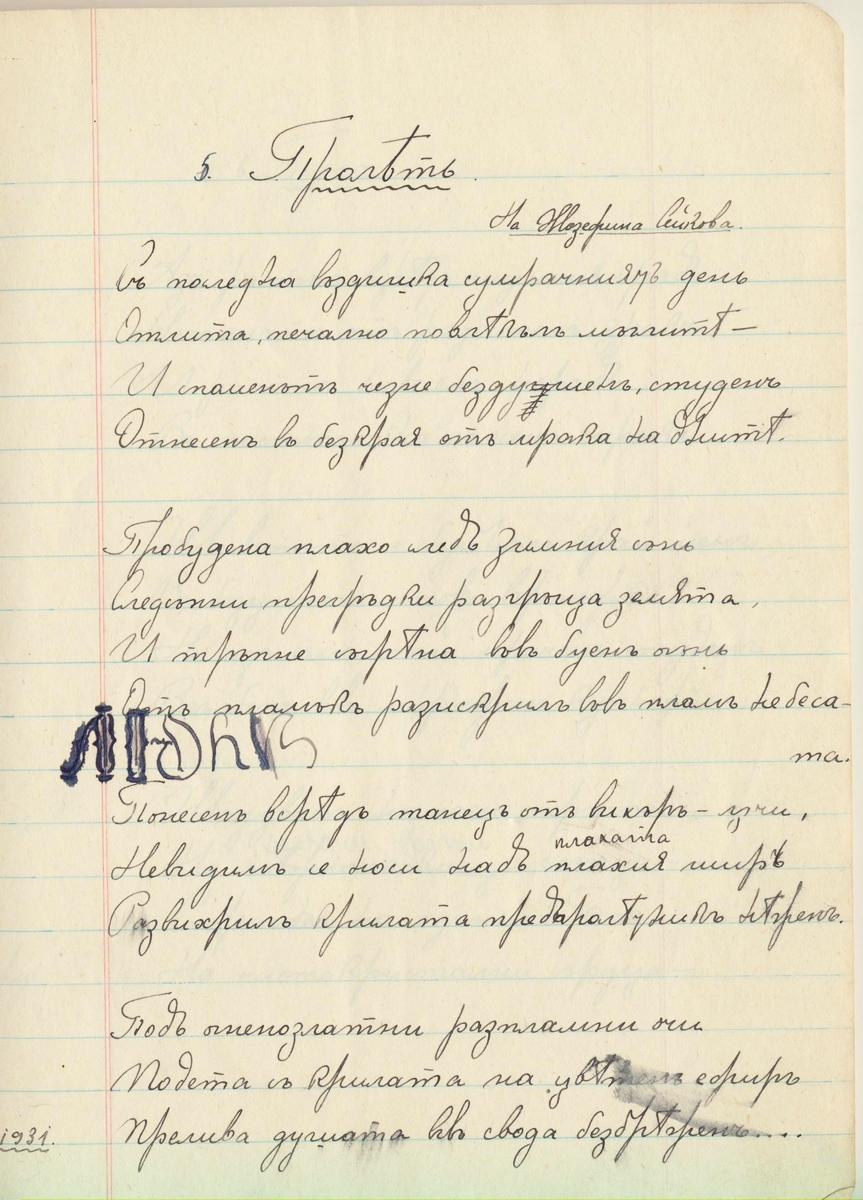 5. Пролѣть.
На Жозефина Сейкова.
Съ последна въздишка сумрачниятъ день
Отлита, печално повлѣкълъ мъглитѣ —
И споменътъ чезне бездушенъ, студенъ
Отнесенъ въ безкрая отъ мрака на днитѣ.
Пробудена плахо следъ зимния сънь
Следсънни прегръдки разгръща земята,
И тръпне сгрѣна вовъ буенъ огънь
Отъ пламъкъ разискрилъ вовъ пламъ небеса-
та.
Понесенъ всрѣдъ танецъ отъ вихъръ – лъчи,
плахата
Невидимъ се носи надъ плахия ширъ
Развихрилъ крилата нѣженъ.
Подъ огненозлатни разпламни очи
Подета съ крилата на цвѣтенъ ефиръ
Прелива душата въ свода безбрѣженъ....
1931.